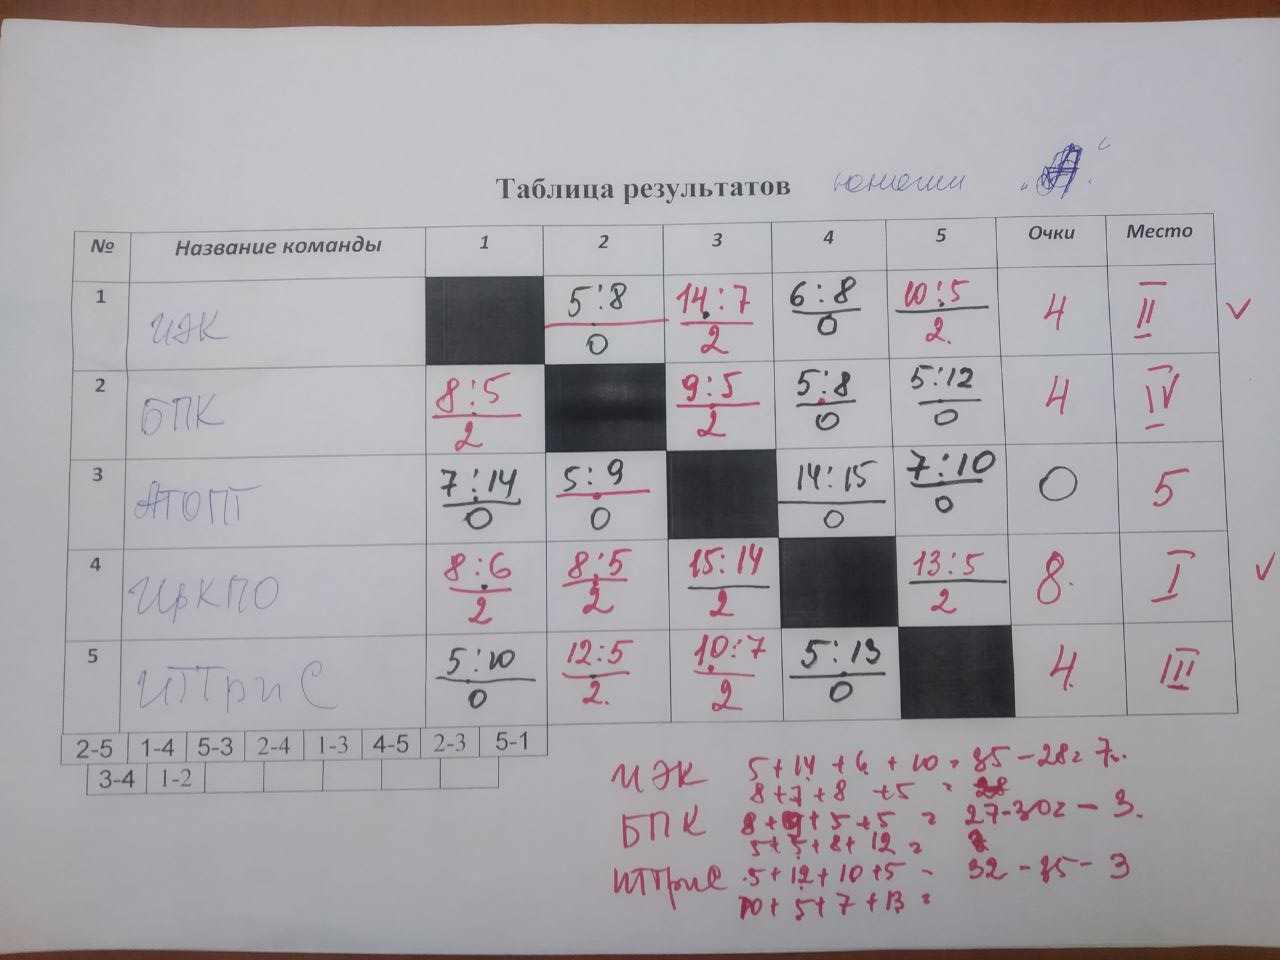 Таблица результатов юноши
№ Название команды 1 2 3 4 5 Очки Место
1 ИЭК 5:8 0 14:7 2 6:8 0 10:5 2. 4 II
2 БПК 8:5 2 9:5 2 5:8 0 5:12 0 4 IV
3 АТОПТ 7:14 0 5:9 0 14:15 0 7:10 0 0 5
4 ИрКПО 8:6 2 8:5 2 15:14 2 13:5 2 8. I
5 ИТТриС 5:10 0 12:5 2. 10:7 2 5:13 0 4. III
2-5 1-4 5-3 2-4 1-3 4-5 2-3 5-1
3-4 1-2
ИЭК 5+14+6+10=35-28=7.
8+7+8+5=
БПК 8+9+5+5=27-30=-3.
5+5+8+12=
ИТТриС 5+12+10+5-32-35-3
10+5+7+13=